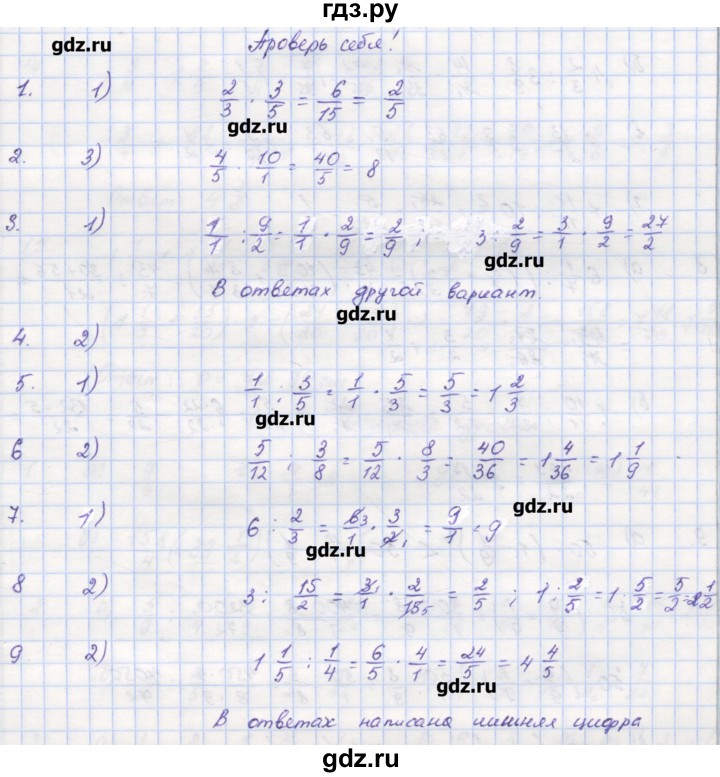 гдз.ру
gdz.ru
Проверь себя!
1. 1) 2/3 · 3/5 = 6/15 = 2/5
gdz.ru
2. 3) 4/5 · 10/1 = 40/5 = 8
3. 1) 1/1 : 9/2 = 1/1 · 2/9 = 2/9 ; 3 : 2/9 = 3/1 · 9/2 = 27/2
gdz.ru
В ответах другой вариант.
gdz.ru
4. 2)
5. 1) 1/1 : 3/5 = 1/1 · 5/3 = 5/3 = 1 2/3
gdz.ru
6 2) 5/12 : 3/8 = 5/12 · 8/3 = 40/36 = 1 4/36 = 1 1/9
gdz.ru
7. 1) 6 : 2/3 = 6 3/1 · 3/2 1 = 9/1 = 9
gdz.ru
8 2) 3 : 15/2 = 3 1/1 · 2/15 5 = 2/5 ; 1 : 2/5 = 1 · 5/2 = 5/2 = 2 1/2
gdz.ru
9 2) 1 1/5 : 1/4 = 6/5 · 4/1 = 24/5 = 4 4/5
gdz.ru
В ответах написана лишняя цифра
gdz.ru